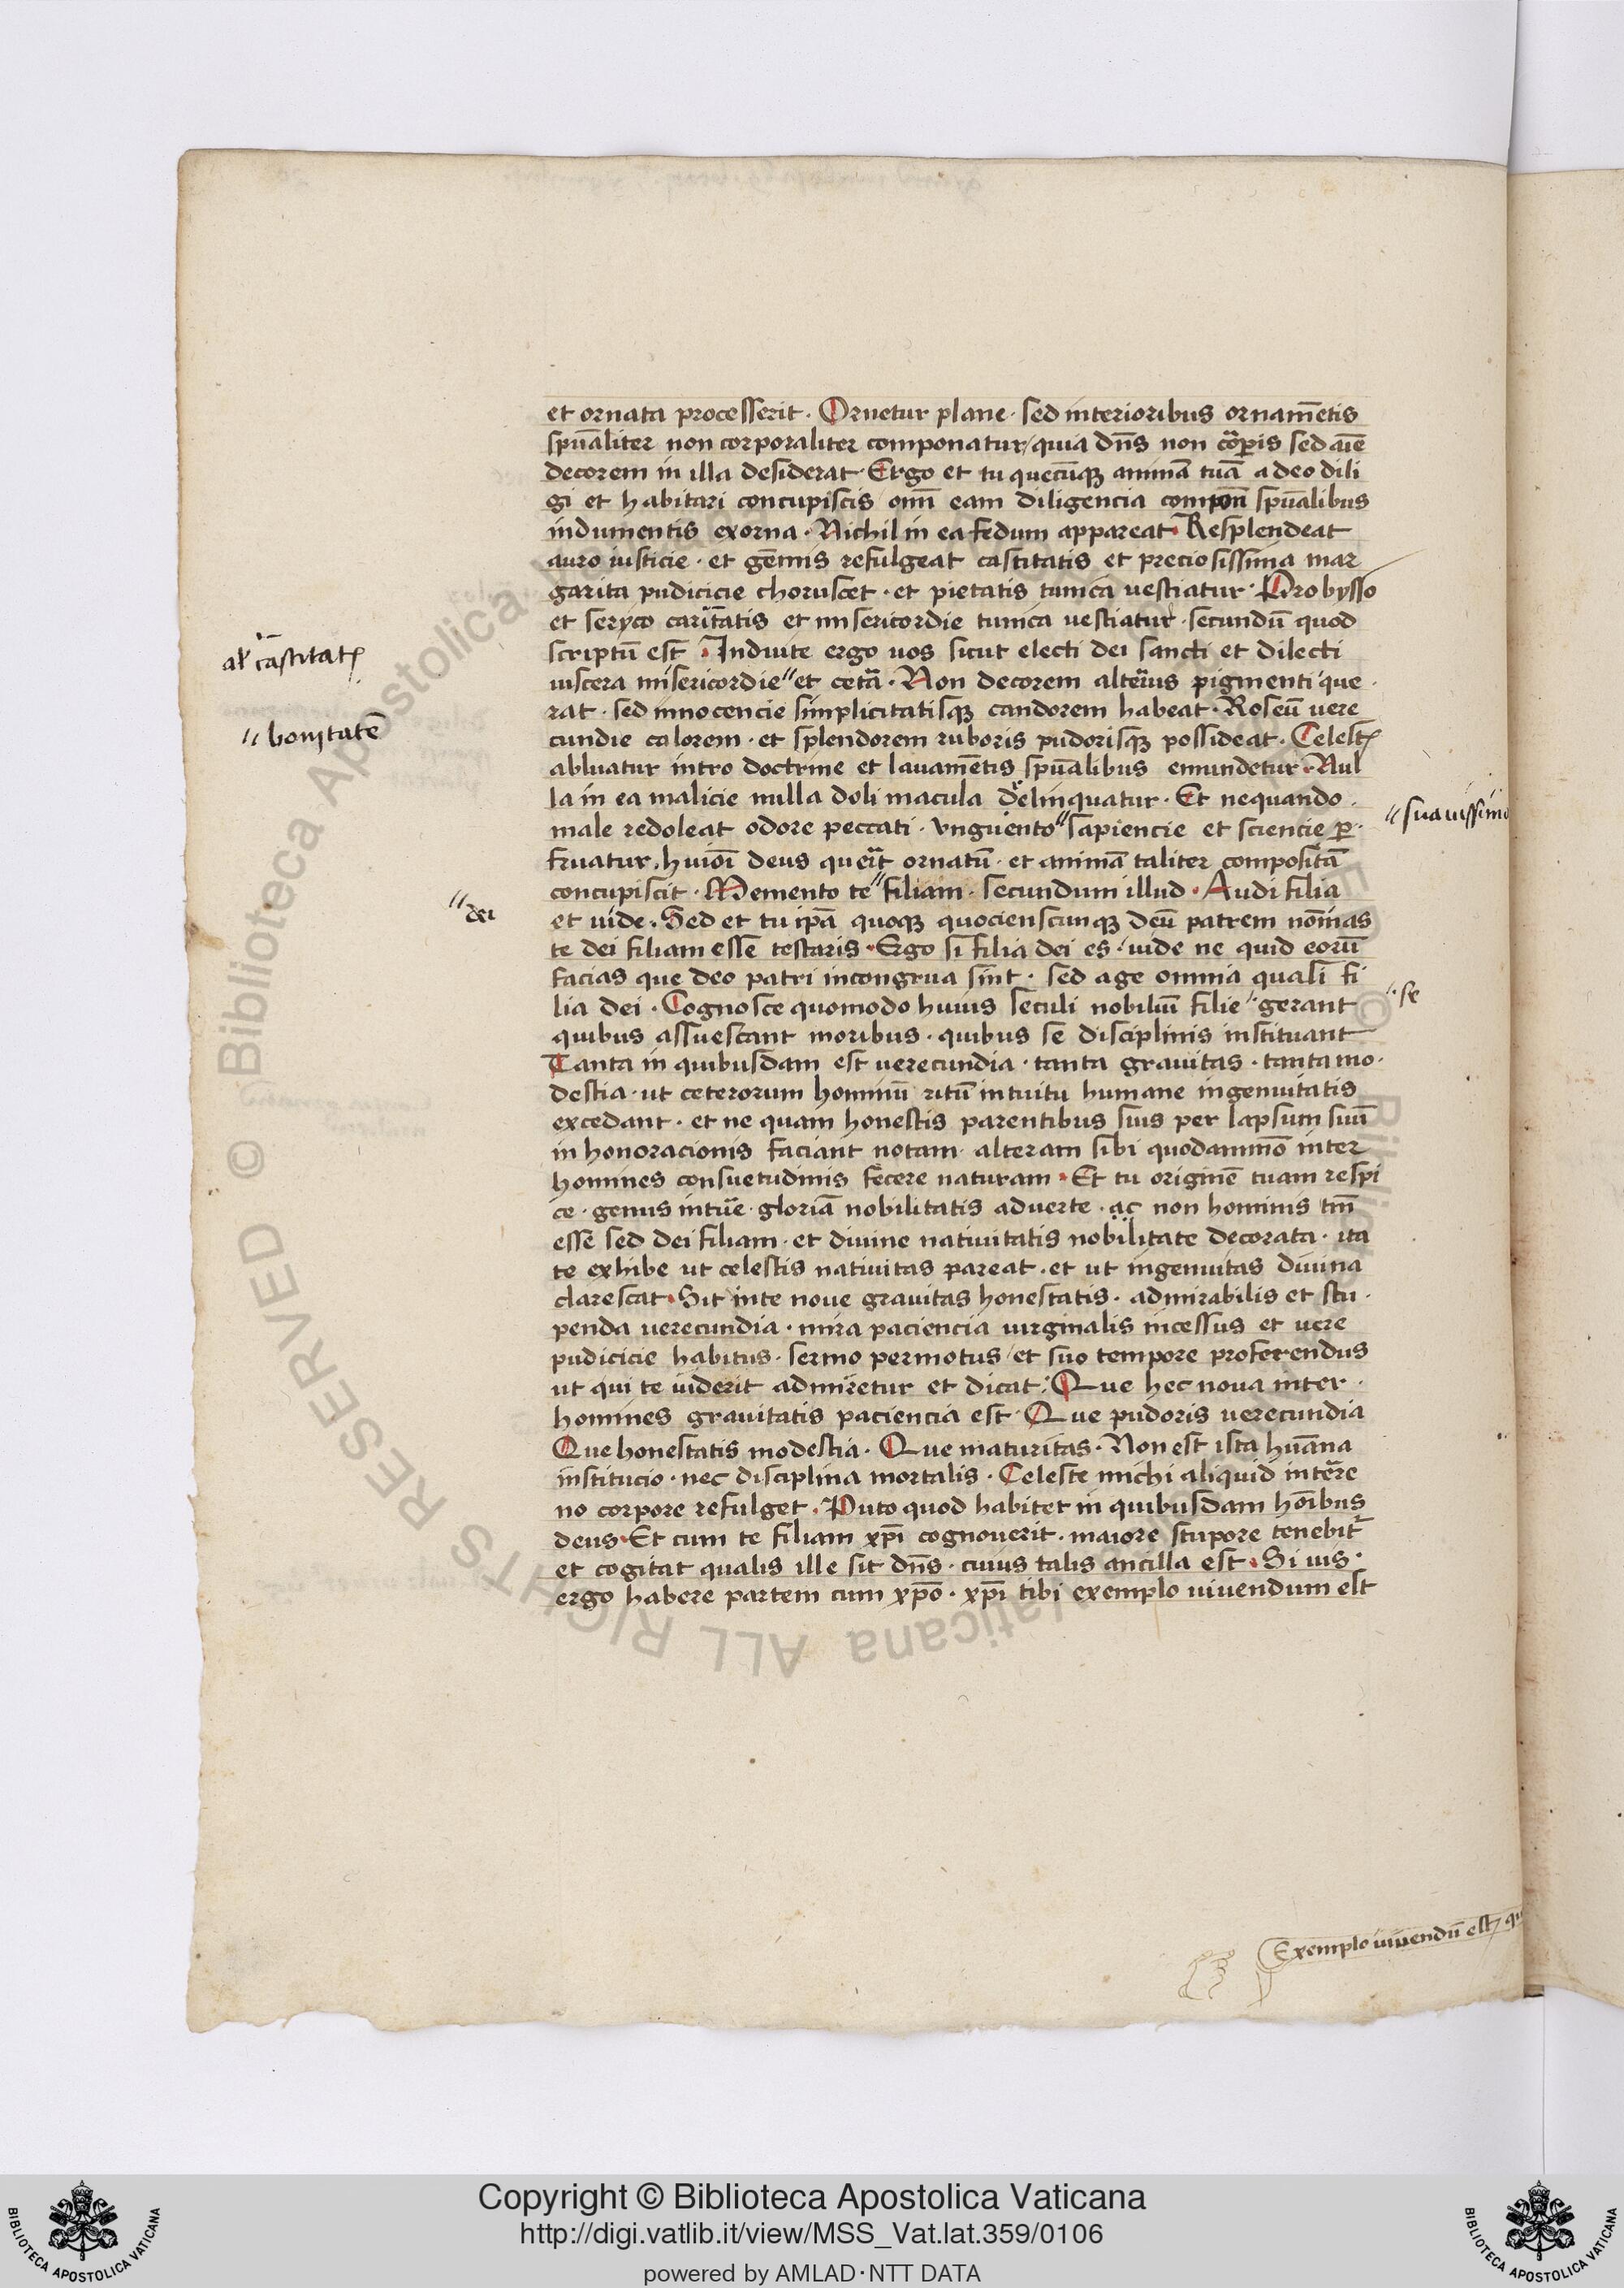 et ornata processerit · Ornetur plane · sed interioribus ornamētis
spūaliter non corporaliter componatur / quia dn̄s non cōꝑis sed aīe
decorem in illa desiderat · Ergo et tu quecūqꝫ animā tuā a deo dili
gi et habitari concupiscis om̄i eam diligencia compon spūalibus
indumentis exorna · Nichil in ea fedum appareat · Resplendeat
auro iusticie · et gēmis refulgeat castitatis et preciosissima mar
garita pudicicie choruscet · et pietatis tunica uestiatur · Pro bysso
et seryco caritatis et misericordie tunica uestiatur · secundū quod
scriptū est · Induite ergo uos sicut electi dei sancti et dilecti
al' castitatꝭ
uiscera misericordie " et cetā · Non decorem alterius pigmenti que ·
rat · sed innocencie simplicitatisqꝫ candorem habeat · Roseū uere
" bonitatē
cundie colorem · et splendorem ruboris pudorisqꝫ possideat · Celestꝭ
abluatur intro doctrine et lauamētis spūalibus emundetur · Nul
la in ea malicie nulla doli macula delinquatur · Et nequando ·
male redoleat odore peccati · vnguento " sapiencie et sciencie ꝑ ·
" suauissimo
fruatur · huiōi deus querit ornatū · et animā taliter compositā
concupiscit · Memento te " filiam · secundum illud · Audi filia
" dei
et uide · Sed et tu ip̄a quoqꝫ quocienscunqꝫ deū patrem nōinas
te dei filiam esse testaris · Ergo si filia dei es · uide ne quid eorū
facias que deo patri incongrua sint · sed age omnia quasi fi
lia dei · Cognosce quomodo huius seculi nobiliū filie " gerant
" se
quibus assuescant moribus · quibus se disciplinis instituant
Tanta in quibusdam est uerecundia · tanta grauitas · tanta mo ·
destia · ut ceterorum hominū ritū intuitu humane ingenuitatis
excedant · et ne quam honestis parentibus suis per lapsum suū
in honoracionis faciant notam · alteram sibi quodammō inter
homines consuetudinis fecere naturam · Et tu originē tuam respi
ce · genus intuē · gloriā nobilitatis aduerte · ac non hominis tm̄
esse sed dei filiam · et diuine natiuitatis nobilitate decorata · ita
te exhibe ut celestis natiuitas pareat · et ut ingenuitas diuina
clarescat · Sit in te noue grauitas honestatis · admirabilis et stu ·
penda uerecundia · mira paciencia uirginalis incessus et uere
pudicicie habitus · sermo permotus / et suo tempore proferendus
ut qui te uiderit admiretur et dicat : Que hec noua inter ·
homines grauitatis paciencia est · Que pudoris uerecundia
Que honestatis modestia · Que maturitas · Non est ista huāna
institucio · nec disciplina mortalis · Celeste michi aliquid in terre
no corpore refulget · Puto quod habitet in quibusdam hōibus
deus · Et cum te filiam xp̄i cognouerit · maiore stupore tenebit᷑
et cogitat qualis ille sit dn̄s · cuius talis ancilla est · Si uis ·
ergo habere partem cum xp̄o · xp̄i tibi exemplo uiuendum est
Exemplo uiuendū est qu
Copyright © Biblioteca Apostolica Vaticana
http://digi.vatlib.it/view/MSS_Vat.lat.359/0106
powered by AMLAD·NTT DATA
BIBLIOTECA APOSTOLICA VATICANA
BIBLIOTECA APOSTOLICA VATICANA
© Biblioteca Apostolica Vaticana ALL RIGHTS RESERVED